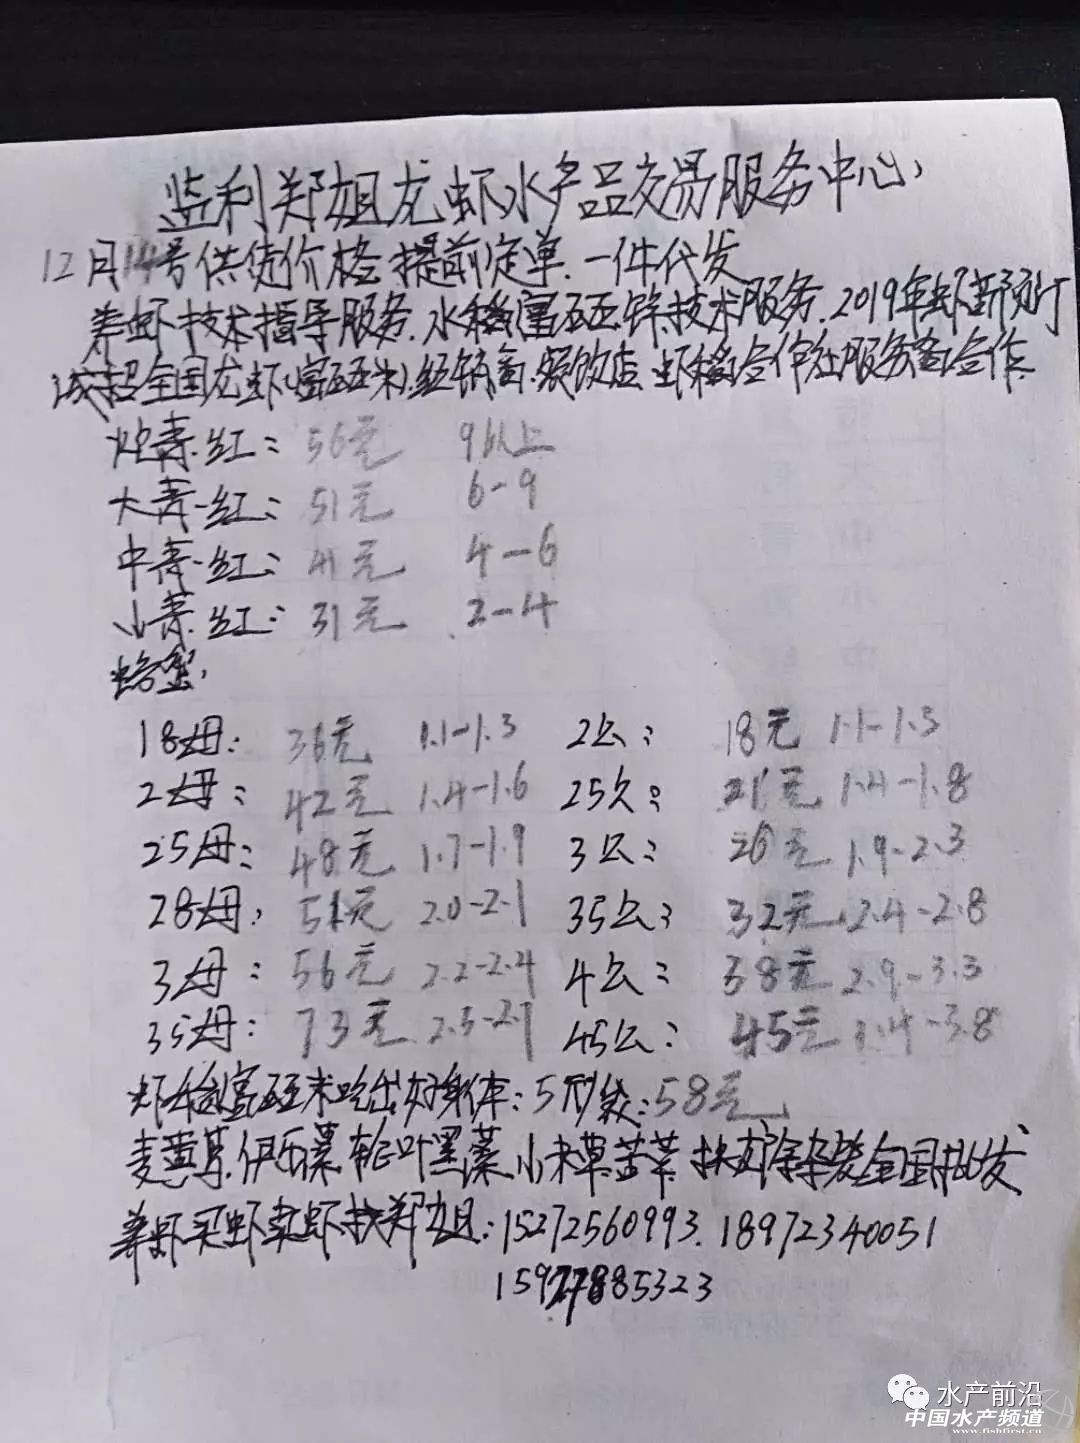 监利郑姐龙虾水产品交易服务中心
12月14号供货价格 提前定单.一件代发
养虾技术指导服务.水稻富硒锌技术服务.2019年虾苗预订
诚招全国龙虾富硒米经销商.餐饮店 虾稻合作社服务商合作
炮青.红: 56元 9以上
大青-红: 51元 6-9
中青-红: 41元 4-6
小青.红: 31元 2-4
螃蟹:
18母: 36元 1.1-1.3 2公: 18元 1.1-1.3
2母: 42元 1.4-1.6 25公: 21元 1.4-1.8
25母: 48元 1.7-1.9 3公: 26元 1.9-2.3
28母: 51元 2.0-2.1 35公: 32元 2.4-2.8
3母: 56元 2.2-2.4 4公: 38元 2.9-3.3
35母: 73元 2.5-2.7 45公: 45元 3.4-3.8
虾稻富硒米吃出好身体: 5斤袋: 58元
麦黄草.伊乐藻.轮叶黑藻.小米草.苦草 全国批发
养虾买虾卖虾找郑姐: 15272560993. 18972340051
15927885323
水产前沿
中国水产频道
www.fishfirst.cn